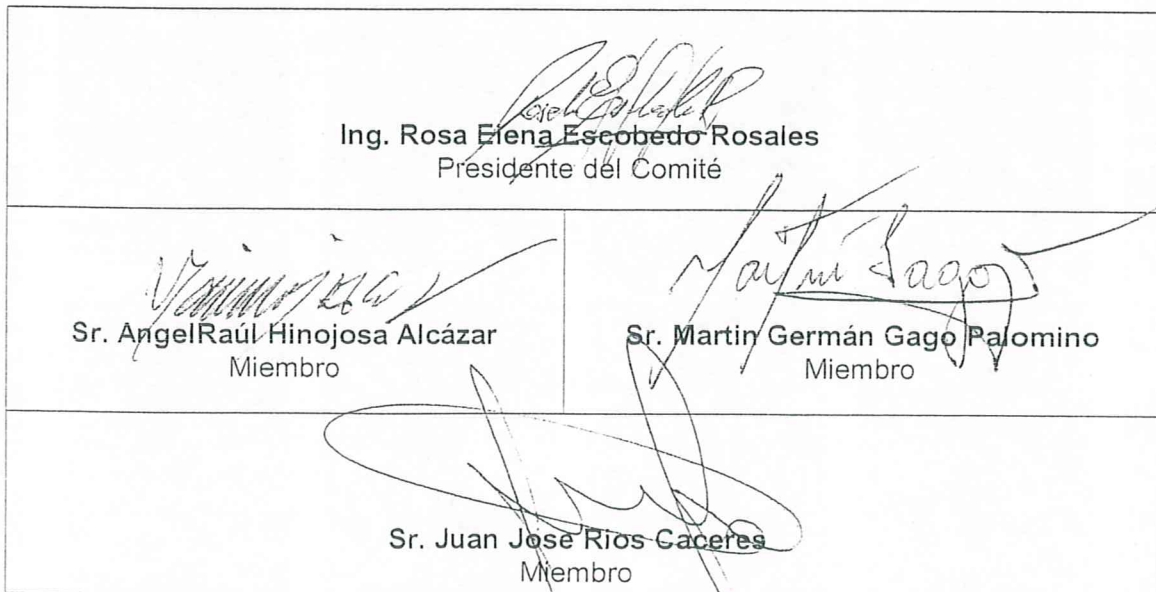 Ing. Rosa Elena Escobedo Rosales
Presidente del Comité
Martin Gago
Sr. AngelRaúl Hinojosa Alcázar
Miembro
Sr. Martin Germán Gago Palomino
Miembro
Sr. Juan José Rios Caceres
Miembro